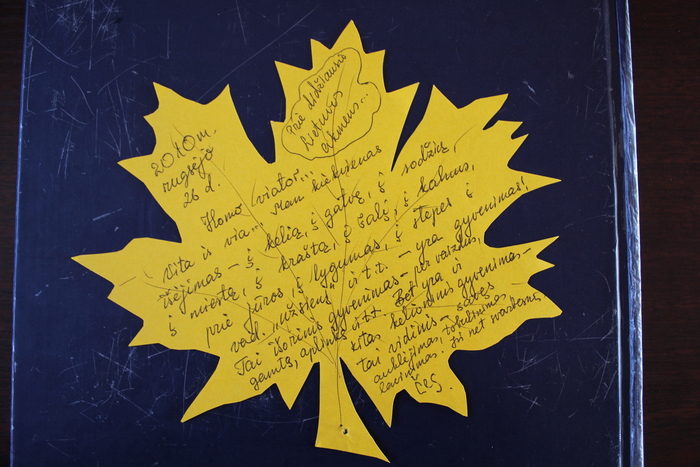 Prie didžiausio
Lietuvos
akmens...
2010 m.
rugsėjo
26 d.
Homo viator...
Vita is via... Man kiekvienas
išėjimas - į kelią, į gatvę, į sodžių,
į miestą, į kraštą, į šalį, į kalnus,
prie jūros, į lygumas, į stepes į
vad. „užsienį" ir t.t. - yra gyvenimas!
Tai išorinis gyvenimas - per vaizdus,
gamtą, aplinką ir t.t. Bet yra ir
kitas kelioninis gyvenimas -
tai vidinis - savęs
auklėjimas, tobulinimas
lavinimas.
ČeS.